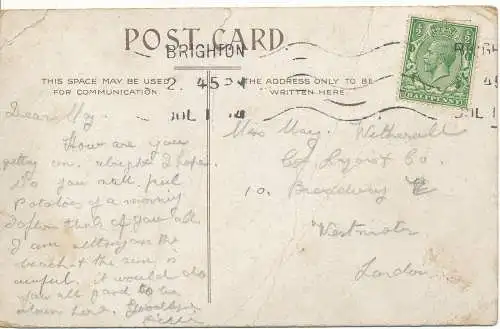 POST CARD
BRIGHTON
2. 45
JUL 1
THIS SPACE MAY BE USED
FOR COMMUNICATION
THE ADDRESS ONLY TO BE
WRITTEN HERE
HALFPENNY
Dear
How are you
getting on. alright I hope.
Do you still peel
Potatoes of a morning
I often think of you all.
I am sitting on the
beach & the sun is
awful. it would do
you all good to be
down here. Goodbye
Miss May Wetherall
Co
10. Broadway
Westminster
London